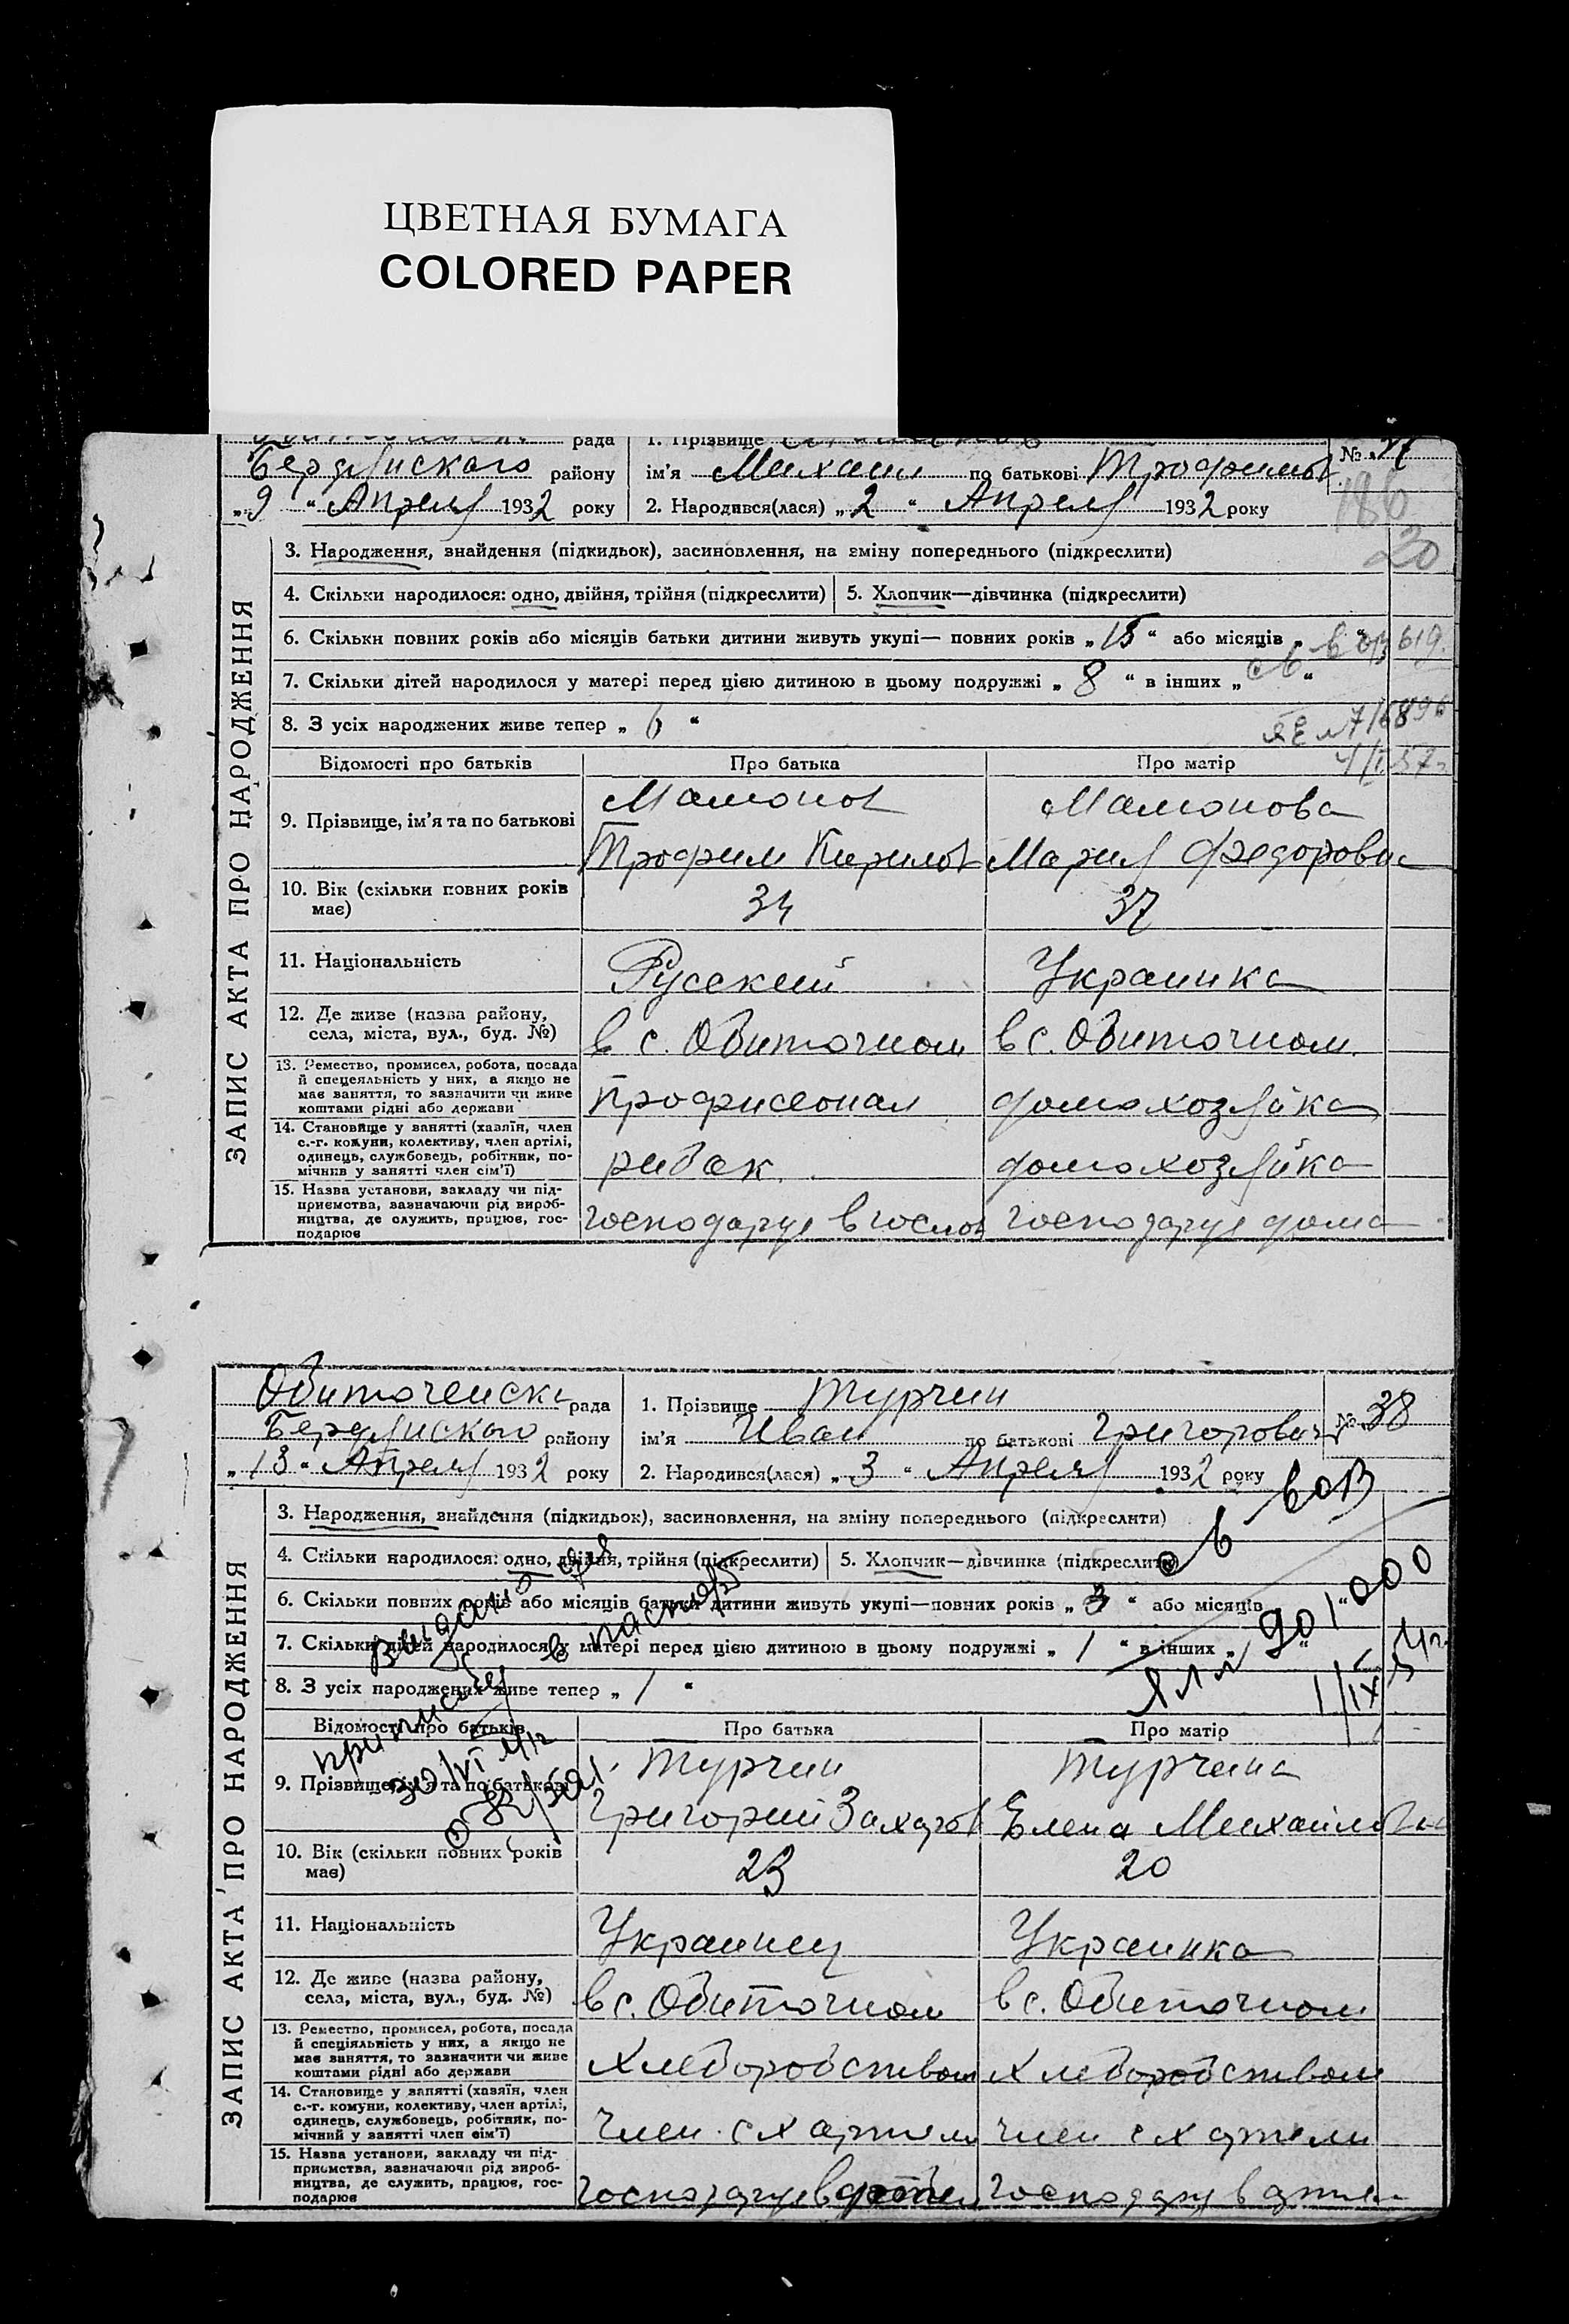 ЦВЕТНАЯ БУМАГА
COLORED PAPER
рада 1. Прізвище №
Бердянского району ім'я Михаил по батькові Трофимов
„9“ Апреля 1932 року 2. Народився(лася) „2“ Апреля 1932 року
186
20
ЗАПИС АКТА ПРО НАРОДЖЕННЯ
3. Народження, знайдення (підкидьок), засиновлення, на зміну попереднього (підкреслити)
4. Скільки народилося: одно, двійня, трійня (підкреслити) 5. Хлопчик—дівчинка (підкреслити)
6. Скільки повних років або місяців батьки дитини живуть укупі— повних років „15“ або місяців „ “
7. Скільки дітей народилося у матері перед цією дитиною в цьому подружжі „8“ в інших „ “
8. З усіх народжених живе тепер „6“
Відомості про батьків Про батька Про матір
9. Прізвище, ім'я та по батькові
Мамонов Мамонова
Трофим Кирилов Мария Федоровна
10. Вік (скільки повних років
має)
34 37
11. Національність Русский Украинка
12. Де живе (назва району,
села, міста, вул., буд. №)
в с. Обиточном в с. Обиточном
13. Ремество, промисел, робота, посада
й спецеяльність у них, а якщо не
має заняття, то зазначити чи живе
коштами рідні або держави
професионал домохозяйка
14. Становище у занятті (хазяїн, член
с.-г. комуни, колективу, член артілі,
одинець, службовець, робітник, по-
мічник у занятті член сім'ї)
рибак домохозяйка
15. Назва установи, закладу чи під-
приємства, зазначаючи рід вироб-
ництва, де служить, працює, гос-
подарює
господарує в господарує дома
Обиточенска рада 1. Прізвище Турчин № 38
Бердянского району ім'я Иван по батькові Григорович
„13“ Апреля 1932 року 2. Народився(лася) „3“ Апреля 1932 року
ЗАПИС АКТА ПРО НАРОДЖЕННЯ
3. Народження, знайдення (підкидьок), засиновлення, на зміну попереднього (підкреслити)
4. Скільки народилося: одно, двійня, трійня (підкреслити) 5. Хлопчик—дівчинка (підкреслити)
6. Скільки повних років або місяців батьки дитини живуть укупі—повних років „3“ або місяців „ “
7. Скільки дітей народилося у матері перед цією дитиною в цьому подружжі „1“ в інших „ “
8. З усіх народжених живе тепер „1“
Відомості про батьків Про батька Про матір
9. Прізвище, ім'я та по батькові
Турчин Турчина
Григорий Захаров Елена Михайловна
10. Вік (скільки повних років
має)
23 20
11. Національність Украинец Украинка
12. Де живе (назва району,
села, міста, вул., буд. №)
в с. Обиточном в с. Обиточном
13. Ремество, промисел, робота, посада
й спеціяльність у них, а якщо не
має заняття, то зазначити чи живе
коштами рідні або держави
Хлеборобством Хлеборобством
14. Становище у занятті (хазяїн, член
с.-г. комуни, колективу, член артілі,
одинець, службовець, робітник, по-
мічний у занятті член сім'ї)
член с х артели член с х артели
15. Назва установи, закладу чи під-
приємства, зазначаючи рід вироб-
ництва, де служить, працює, гос-
подарює
господарує в артели господарує в артели